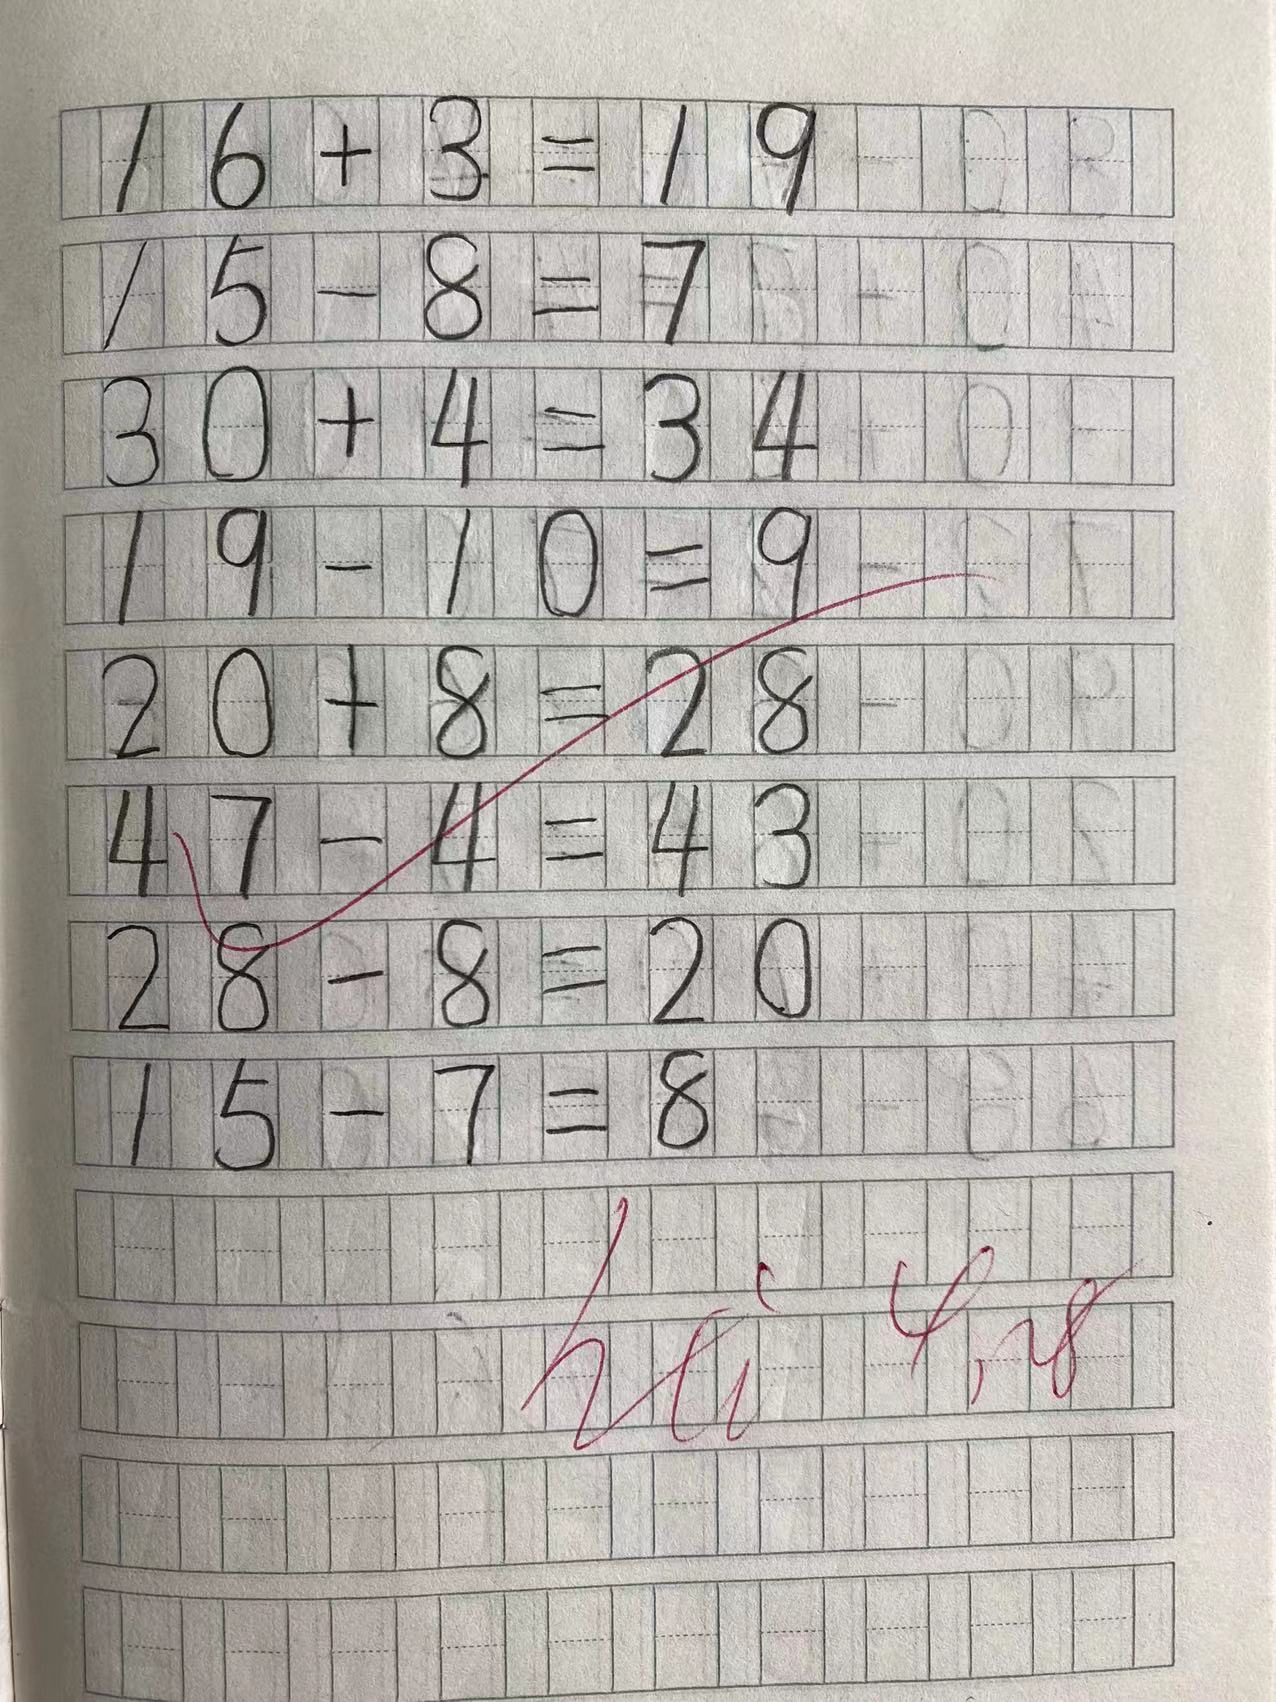 16+3=19
15-8=7
30+4=34
19-10=9
20+8=28
47-4=43
28-8=20
15-7=8
4,28